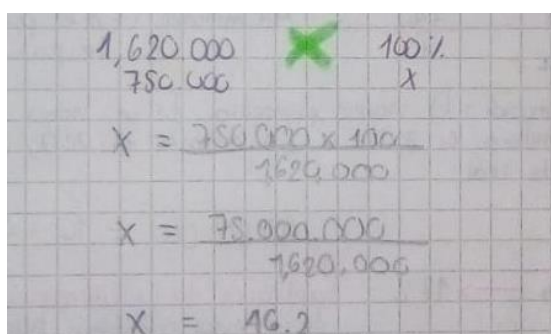 1,620.000 100%
750.000 x
x = 750.000 x 100
1,620,000
x = 75.000.000
1,620.000
x = 46.2